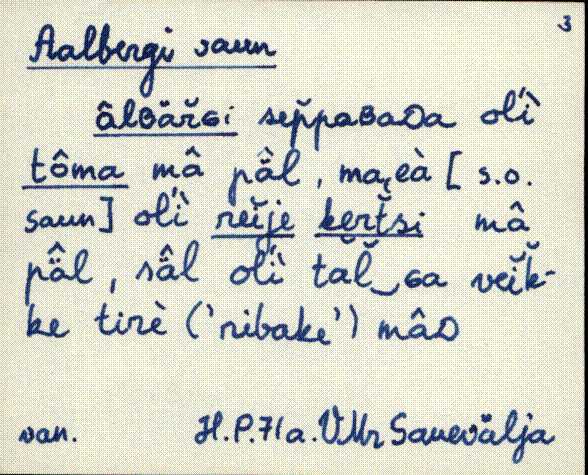 3
Aalbergi saun
âlʙäřɢi sep̆paʙaᴅa oĺì
tôma mâ pä̂l, ma, eà [s.o.
saun] oĺì reĭje kert̆si mâ
pä̂l, sä̂l oĺì tăl̆‿ɢa veĭk-
ke tirè ('ribake') mâᴅ
van. H.P. 71 a. VMr Sauevälja